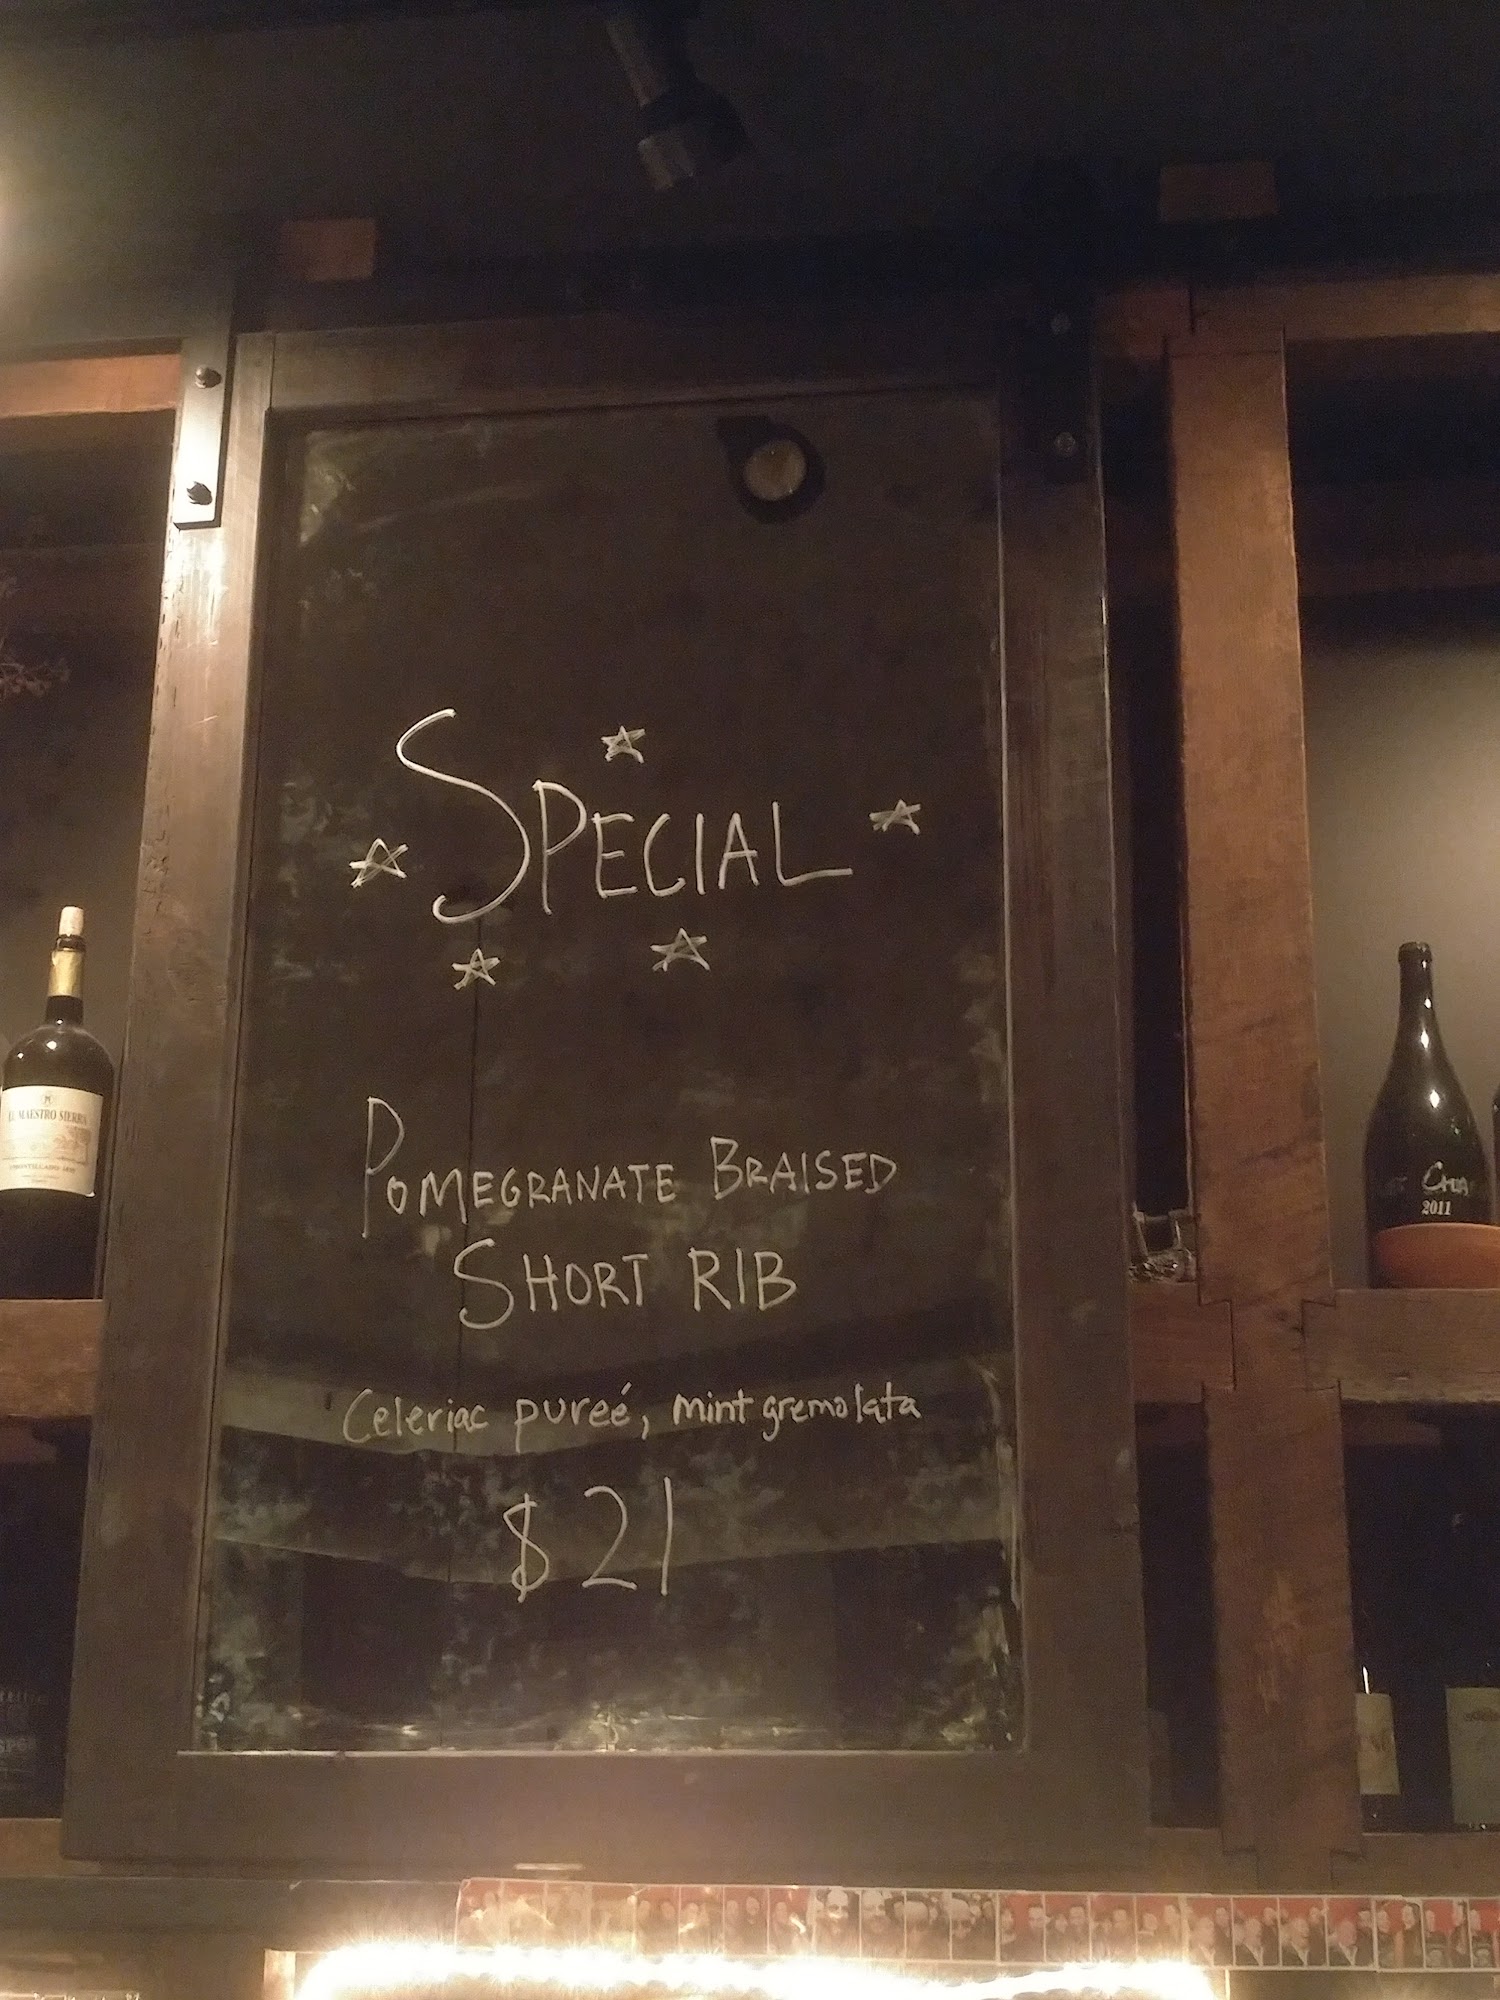 SPECIAL
POMEGRANATE BRAISED
SHORT RIB
Celeriac pureé, mint gremolata
$21
EL MAESTRO SIERRA
2011